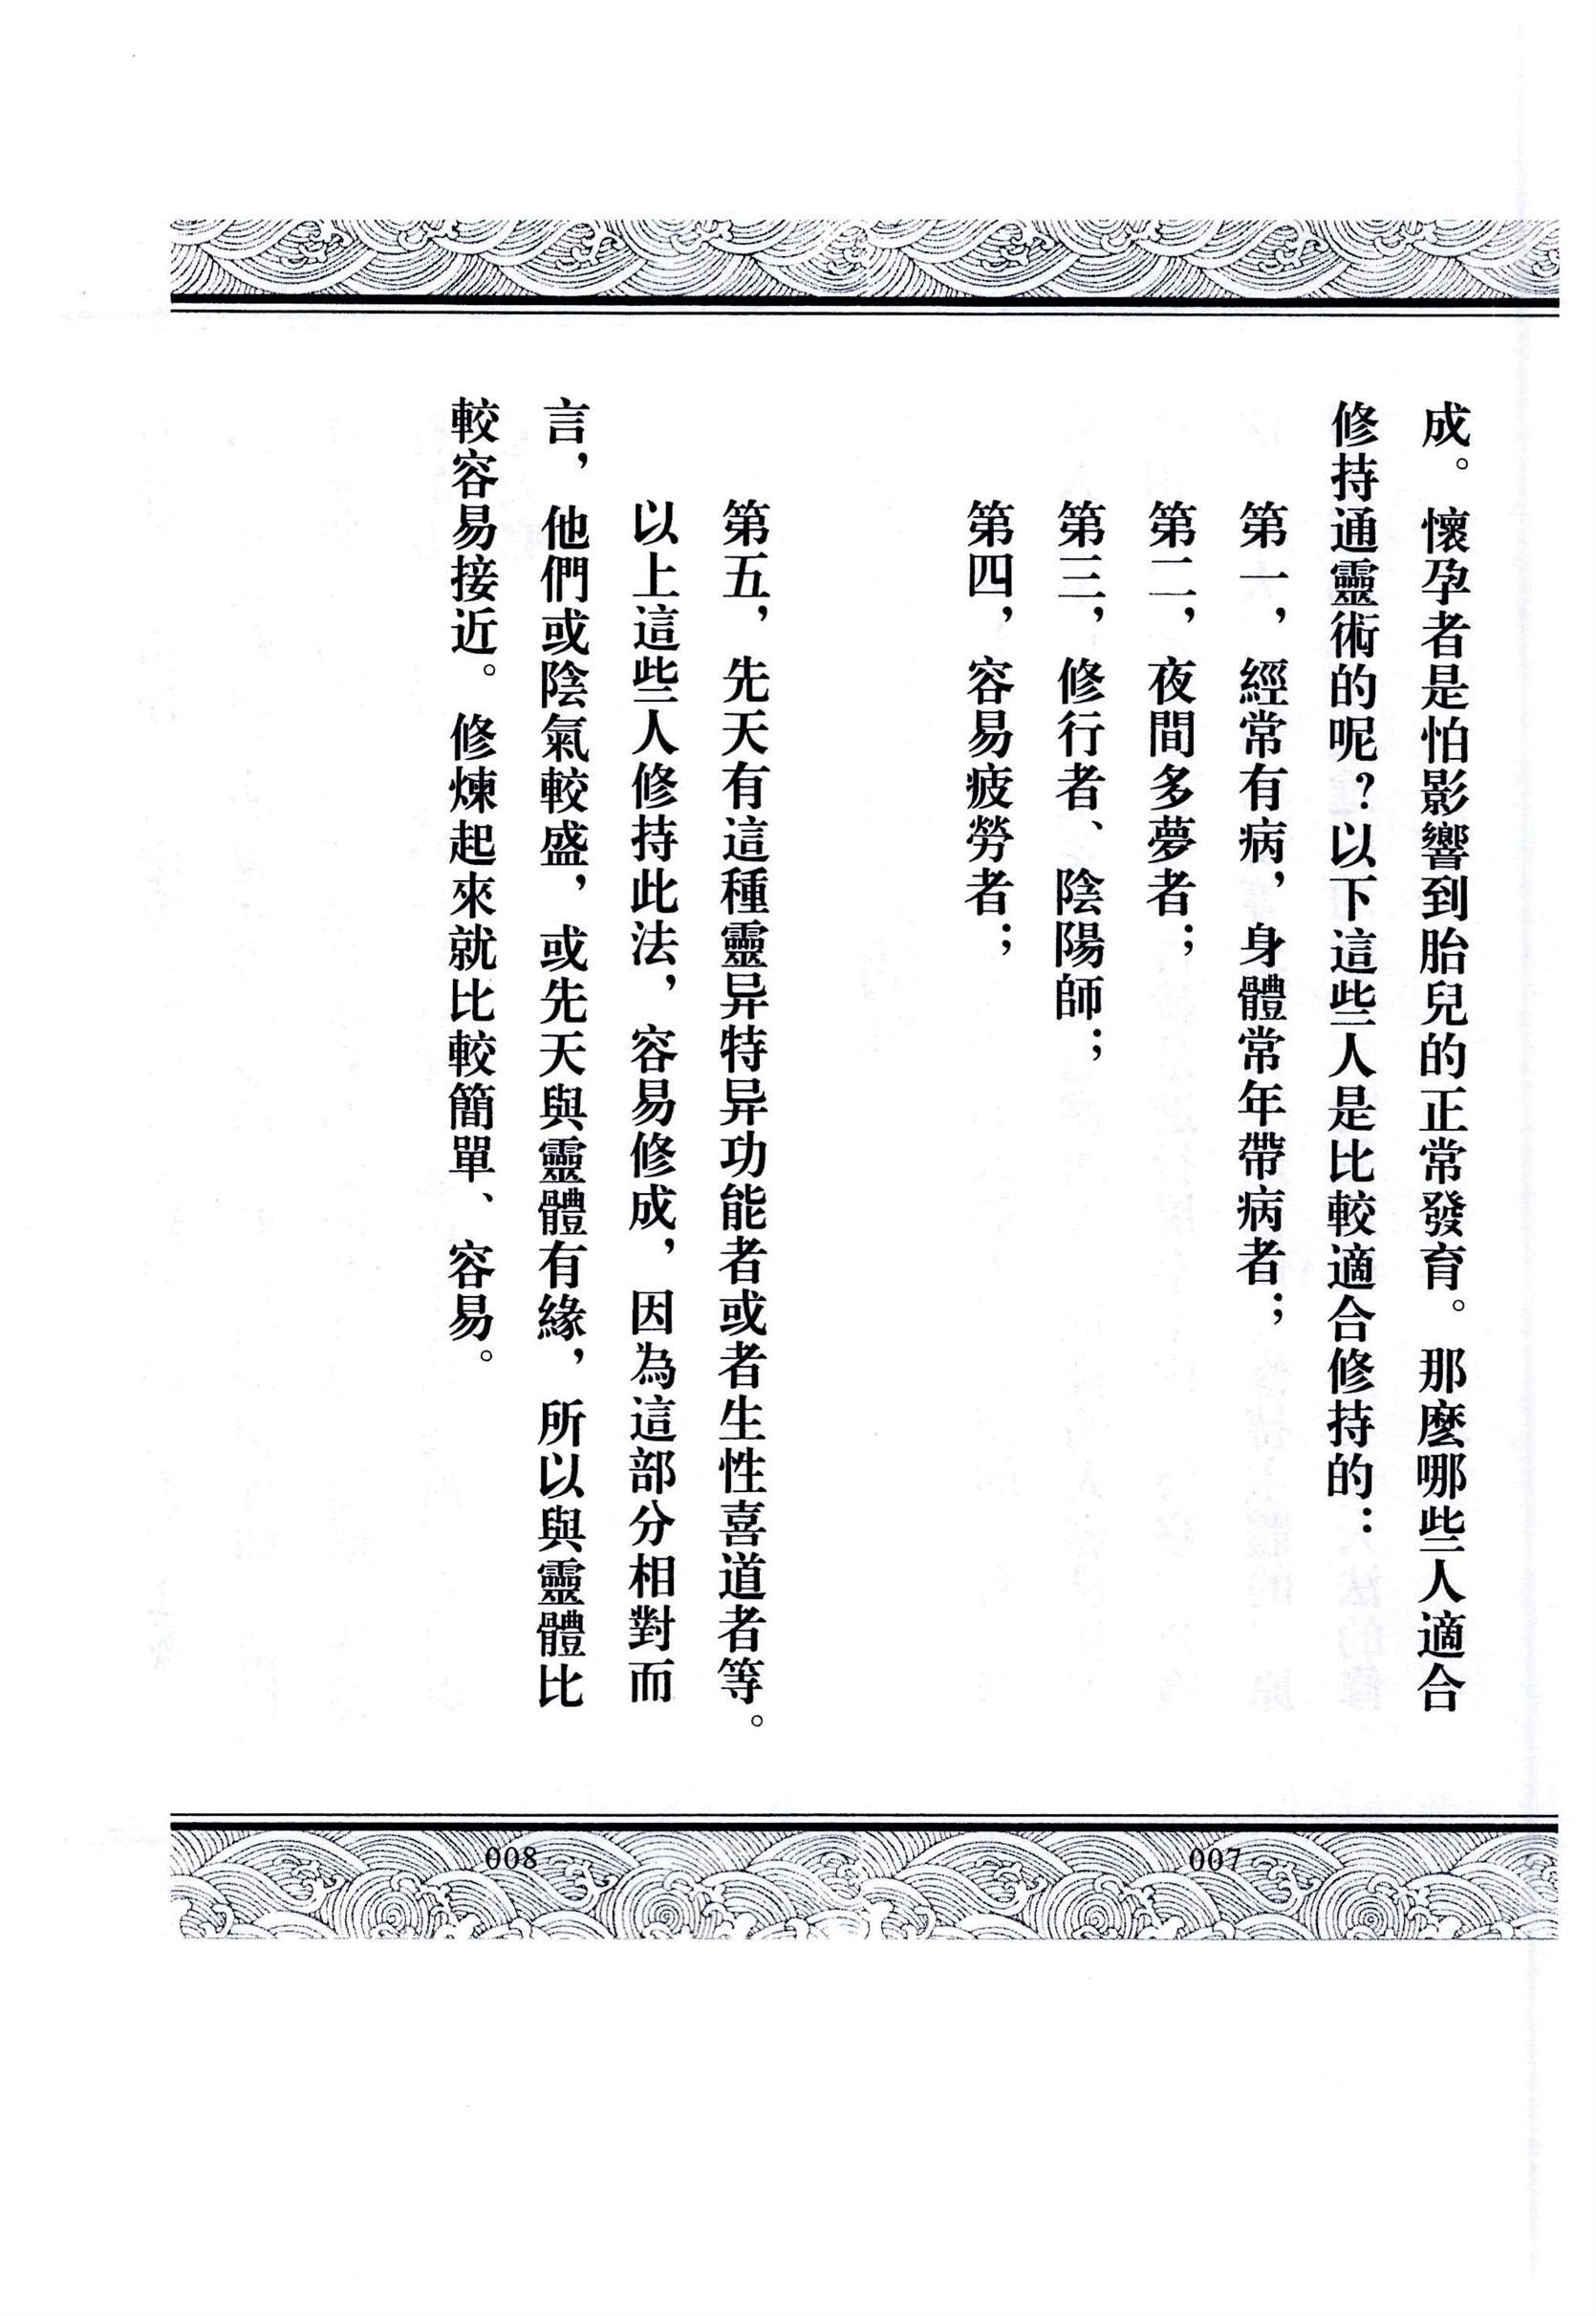 成。懷孕者是怕影響到胎兒的正常發育。那麼哪些人適合
修持通靈術的呢？以下這些人是比較適合修持的：
第一，經常有病，身體常年帶病者；
第二，夜間多夢者；
第三，修行者、陰陽師；
第四，容易疲勞者；
007
第五，先天有這種靈异特异功能者或者生性喜道者等。
以上這些人修持此法，容易修成，因為這部分相對而
言，他們或陰氣較盛，或先天與靈體有緣，所以與靈體比
較容易接近。修煉起來就比較簡單、容易。
008